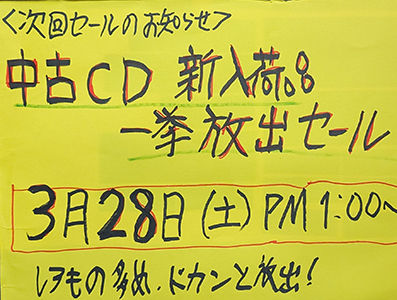 <次回セールのお知らせ>
中古CD 新入荷品
一挙放出セール
3月28日(土)PM1:00〜
レアもの多め、ドカンと放出!